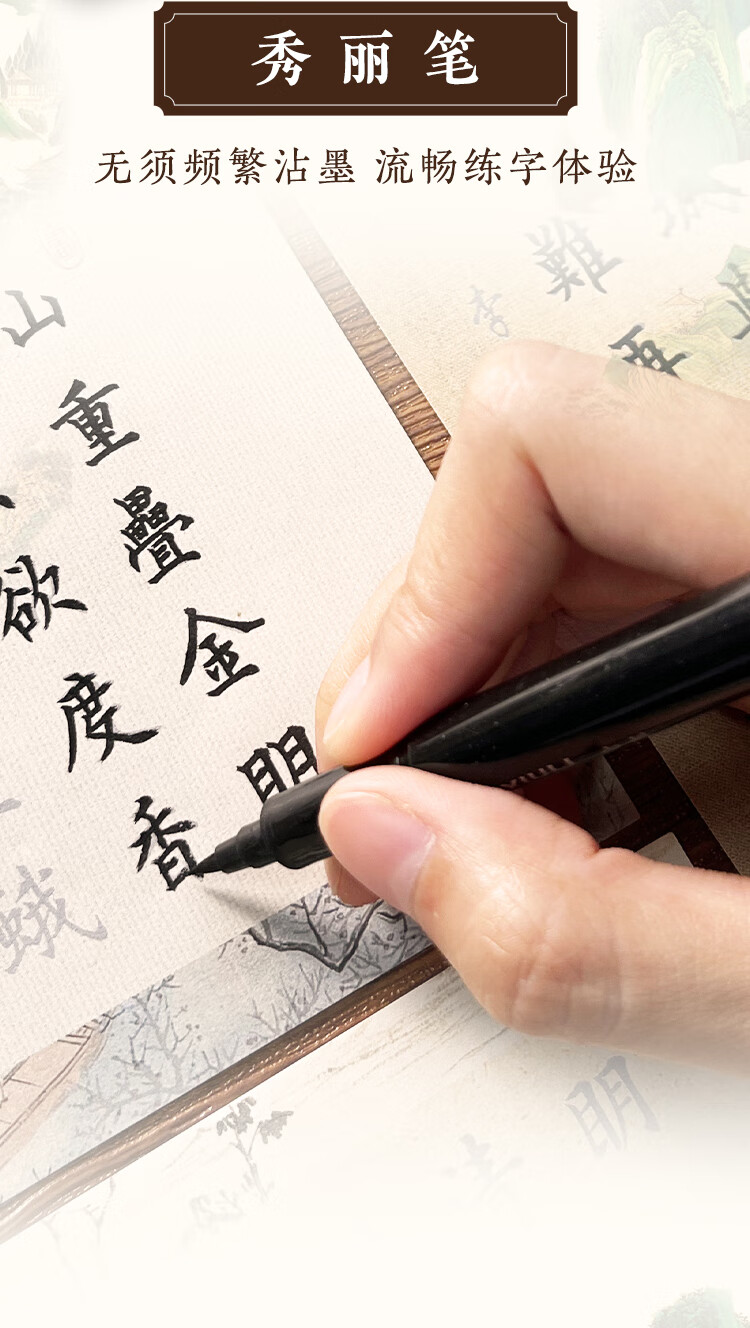 秀丽笔
无须频繁沾墨 流畅练字体验
李
難
再
山重疊金明
欲度香
蛾
明